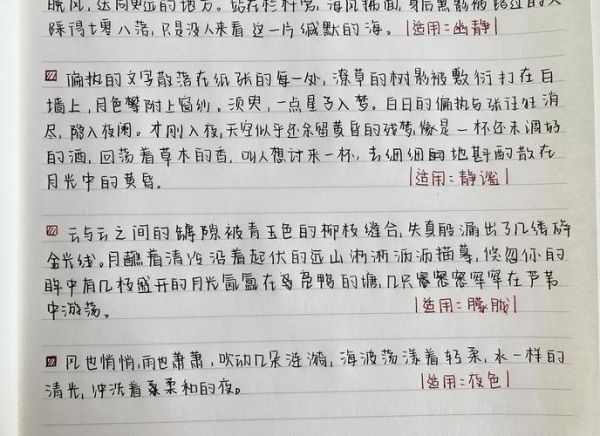 晚风,送向更远的地方。站在栏杆旁,海风拂面,身后黑影被路过的人
踩得七零八落,只是没人来看这一片缄默的海。|适用:幽静|
偏执的文字散落在纸张的每一处,潦草的树影被敷衍打在白
墙上,月色攀附上窗纱。须臾,一点星子入梦。白日的偏执与张狂消
尽,隐入夜阑。才刚入夜,天空似乎还余留黄昏的残梦,像是一杯还未调好
的酒,回荡着草木的香,叫人想讨来一杯,去细细的地斟酌散在
月光中的黄昏。|适用:静谧|
云与云之间的罅隙被青玉色的柳枝缝合,失真般漏出了几缕碎
金光线。月蘸着清冷沿着起伏的远山淅淅沥沥描摹,倏忽你的
眸中有几枝盛开的月光氤氲在凫鸭的塘,几只窸窸窣窣在芦苇
中游荡。|适用:朦胧|
风也悄悄,雨也萧萧,吹动几朵涟漪,海波荡漾着轻柔,水一样的
清光,冲洗着柔和的夜。|适用:夜色|